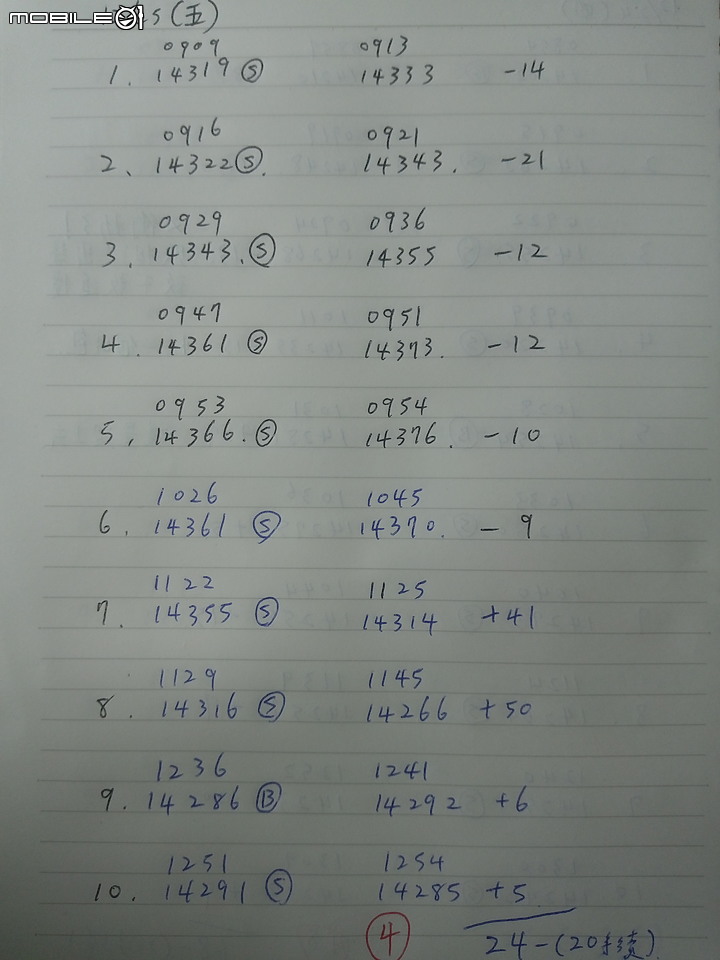 MOBILE01
5(五)
0909 0913
1. 14319 Ⓢ 14333 -14
0916 0921
2、 14322 Ⓢ. 14343. -21
0929 0936
3. 14343. Ⓢ 14355 -12
0947 0951
4. 14361 Ⓢ 14373. -12
0953 0954
5, 14366. Ⓢ 14376. -10
1026 1045
6. 14361 Ⓢ 14370. - 9
1122 1125
7. 14355 Ⓢ 14314 +41
1129 1145
8. 14316 Ⓢ 14266 +50
1236 1241
9. 14286 Ⓑ 14292 +6
1251 1254
10. 14291 Ⓢ 14285 +5
④ 24-(20手續)